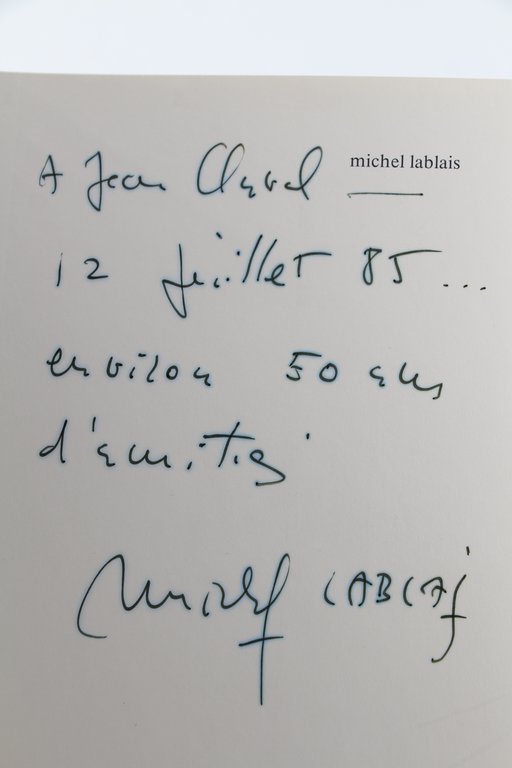 A Jean Clavel michel lablais
12 juillet 85...
environ 50 ans
d'amitié
Michel LABLAIS